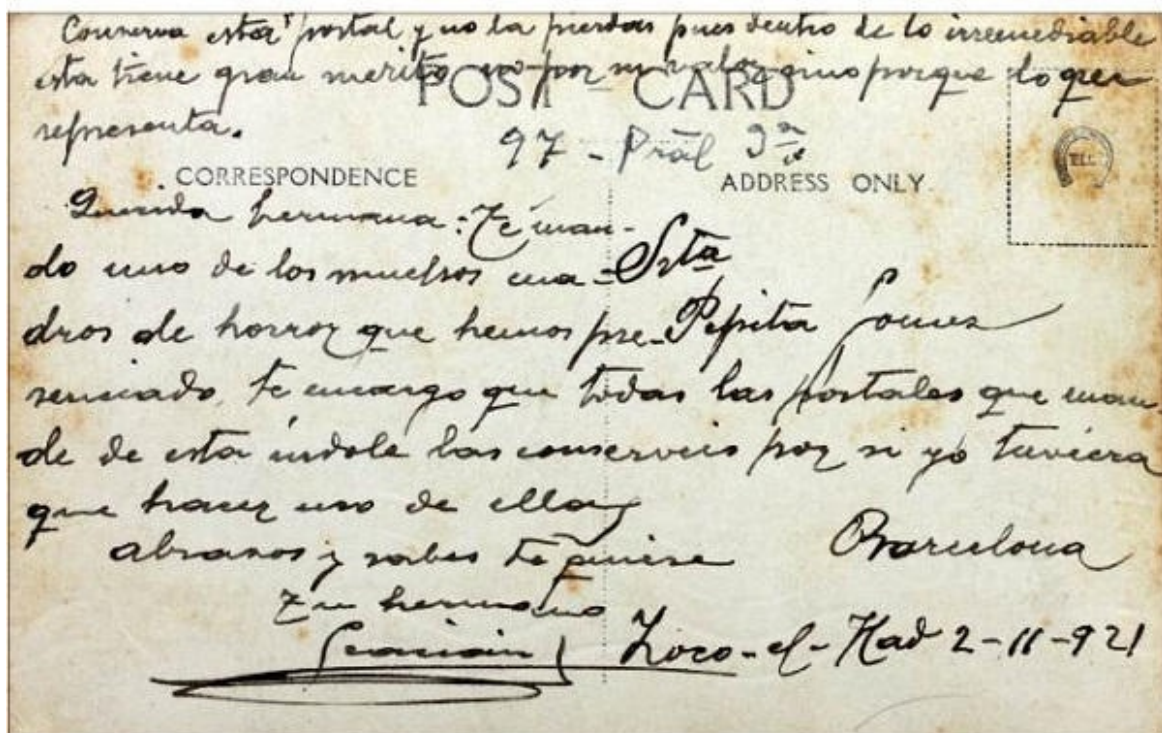 Conserva esta postal y no la pierdas pues dentro de lo irremediable
esta tiene gran merito no por su valor sino porque lo que
representa.
POST CARD
97 - Pral 3ª
CORRESPONDENCE
ADDRESS ONLY
Querida hermana: Te man-
do uno de los muchos cua-
dros de horror que hemos pre-
senciado, te encargo que todas las postales que man-
de de esta indole las conserveis por si yo tuviera
que hacer uso de ellas
abrazos y sabes te quiere
Tu hermano
Srta
Pepita Gomez
Barcelona
Zoco-el-Had 2-11-921